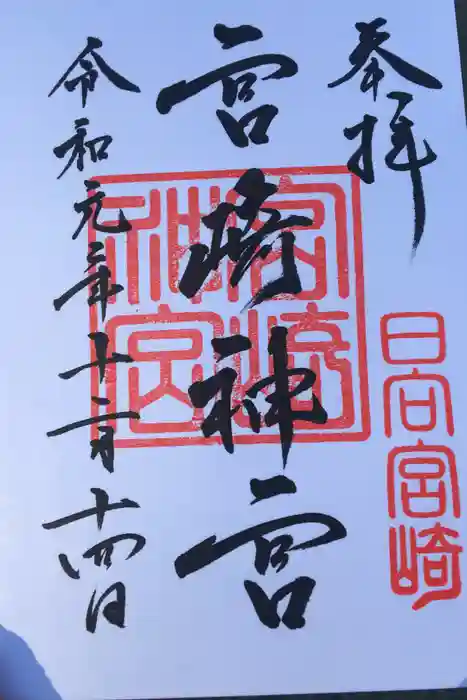 奉拝
日向宮崎
宮崎神宮
宮崎
神宮
令和元年十二月十四日